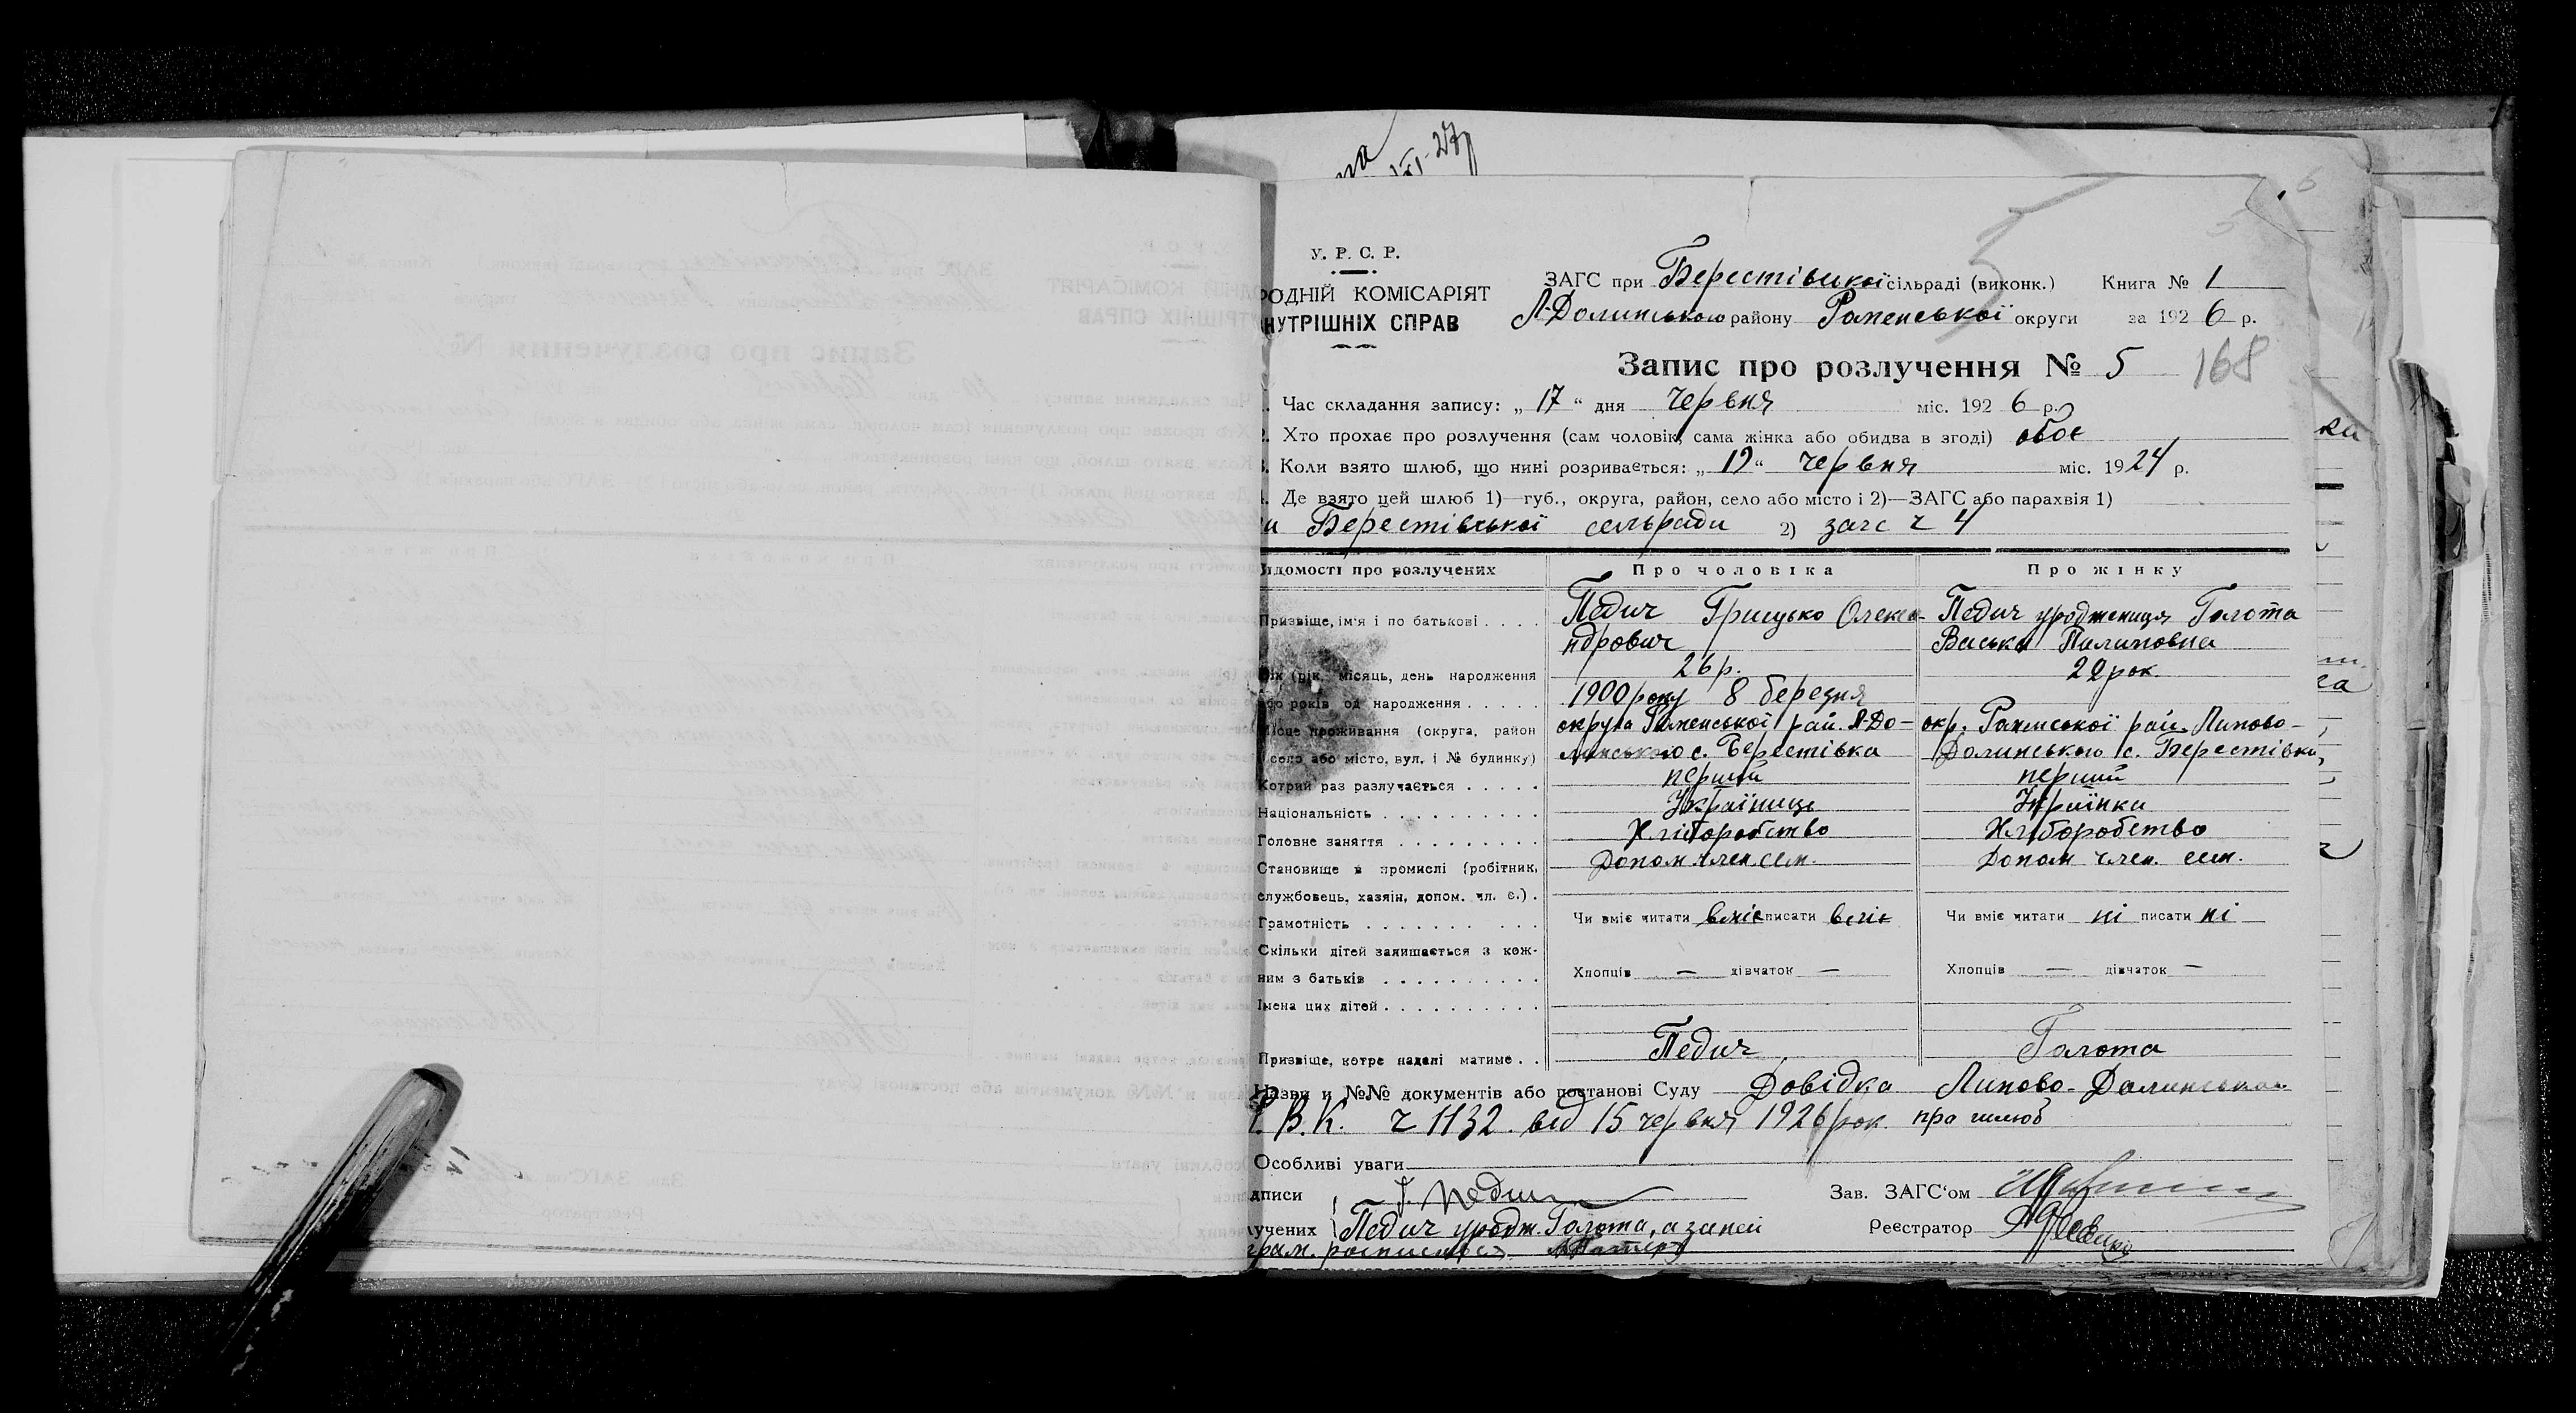 У. Р. С. Р.
РОДНІЙ КОМІСАРІЯТ
НУТРІШНІХ СПРАВ
ЗАГС при Берестівській сільраді (виконк.) Книга № 1
Л-Долинського району Роменської округи за 1926 р.
Запис про розлучення № 5 168
Час складання запису: „ 17 “ дня червня міс. 1926 р.
Хто прохає про розлучення (сам чоловік, сама жінка або обидва в згоді) обоє
Коли взято шлюб, що нині розривається: „ 19 “ червня міс. 1924 р.
Де взято цей шлюб 1)—губ., округа, район, село або місто і 2)—ЗАГС або парахвія 1)
Берестівської сельради 2) загс ч 4
ідомості про розлучених Про чоловіка Про жінку
Призвіще, ім'я і по батькові . . . . Педич Грицько Олекса- Педич уроджениця Голота
ндрович Васька Пилиповна
26 р. 22 рок.
Вік (рік, місяць, день народження
або років од народження . . . . . 1900 року 8 березня
Місце проживання (округа, район округа Роменської рай. Л-До- окр. Роменської рай. Липово-
село або місто, вул. і № будинку) линського с. Берестівка Долинського с. Берестівка,
Котрий раз разлучається . . . . . перший перший
Національність . . . . . . . . . . Українець Українка
Головне заняття . . . . . . . . . Хліборобство Хліборобство
Становище в промислі (робітник, Допом. член сем. Допом член. сем.
службовець, хазяін, допом. чл. с.) .
Грамотність . . . . . . . . . . Чи вміє читати вміє писати вміє Чи вміє читати ні писати ні
Скільки дітей залишається з кож-
ним з батьків . . . . . . . . . . Хлопців — дівчаток — Хлопців — дівчаток —
Імена цих дітей . . . . . . . . . .
Призвіще, котре надалі матиме . . Педич Голота
Назви и №№ документів або постанові Суду Довідка Липово-Долинського
Р. В. К. ч 1132 від 15 червня 1926 рок. про шлюб
Особливі уваги
дписи Г. Педич Зав. ЗАГС‘ом
лучених Педич уродж. Голота, а за неї Реєстратор
грам. росписався